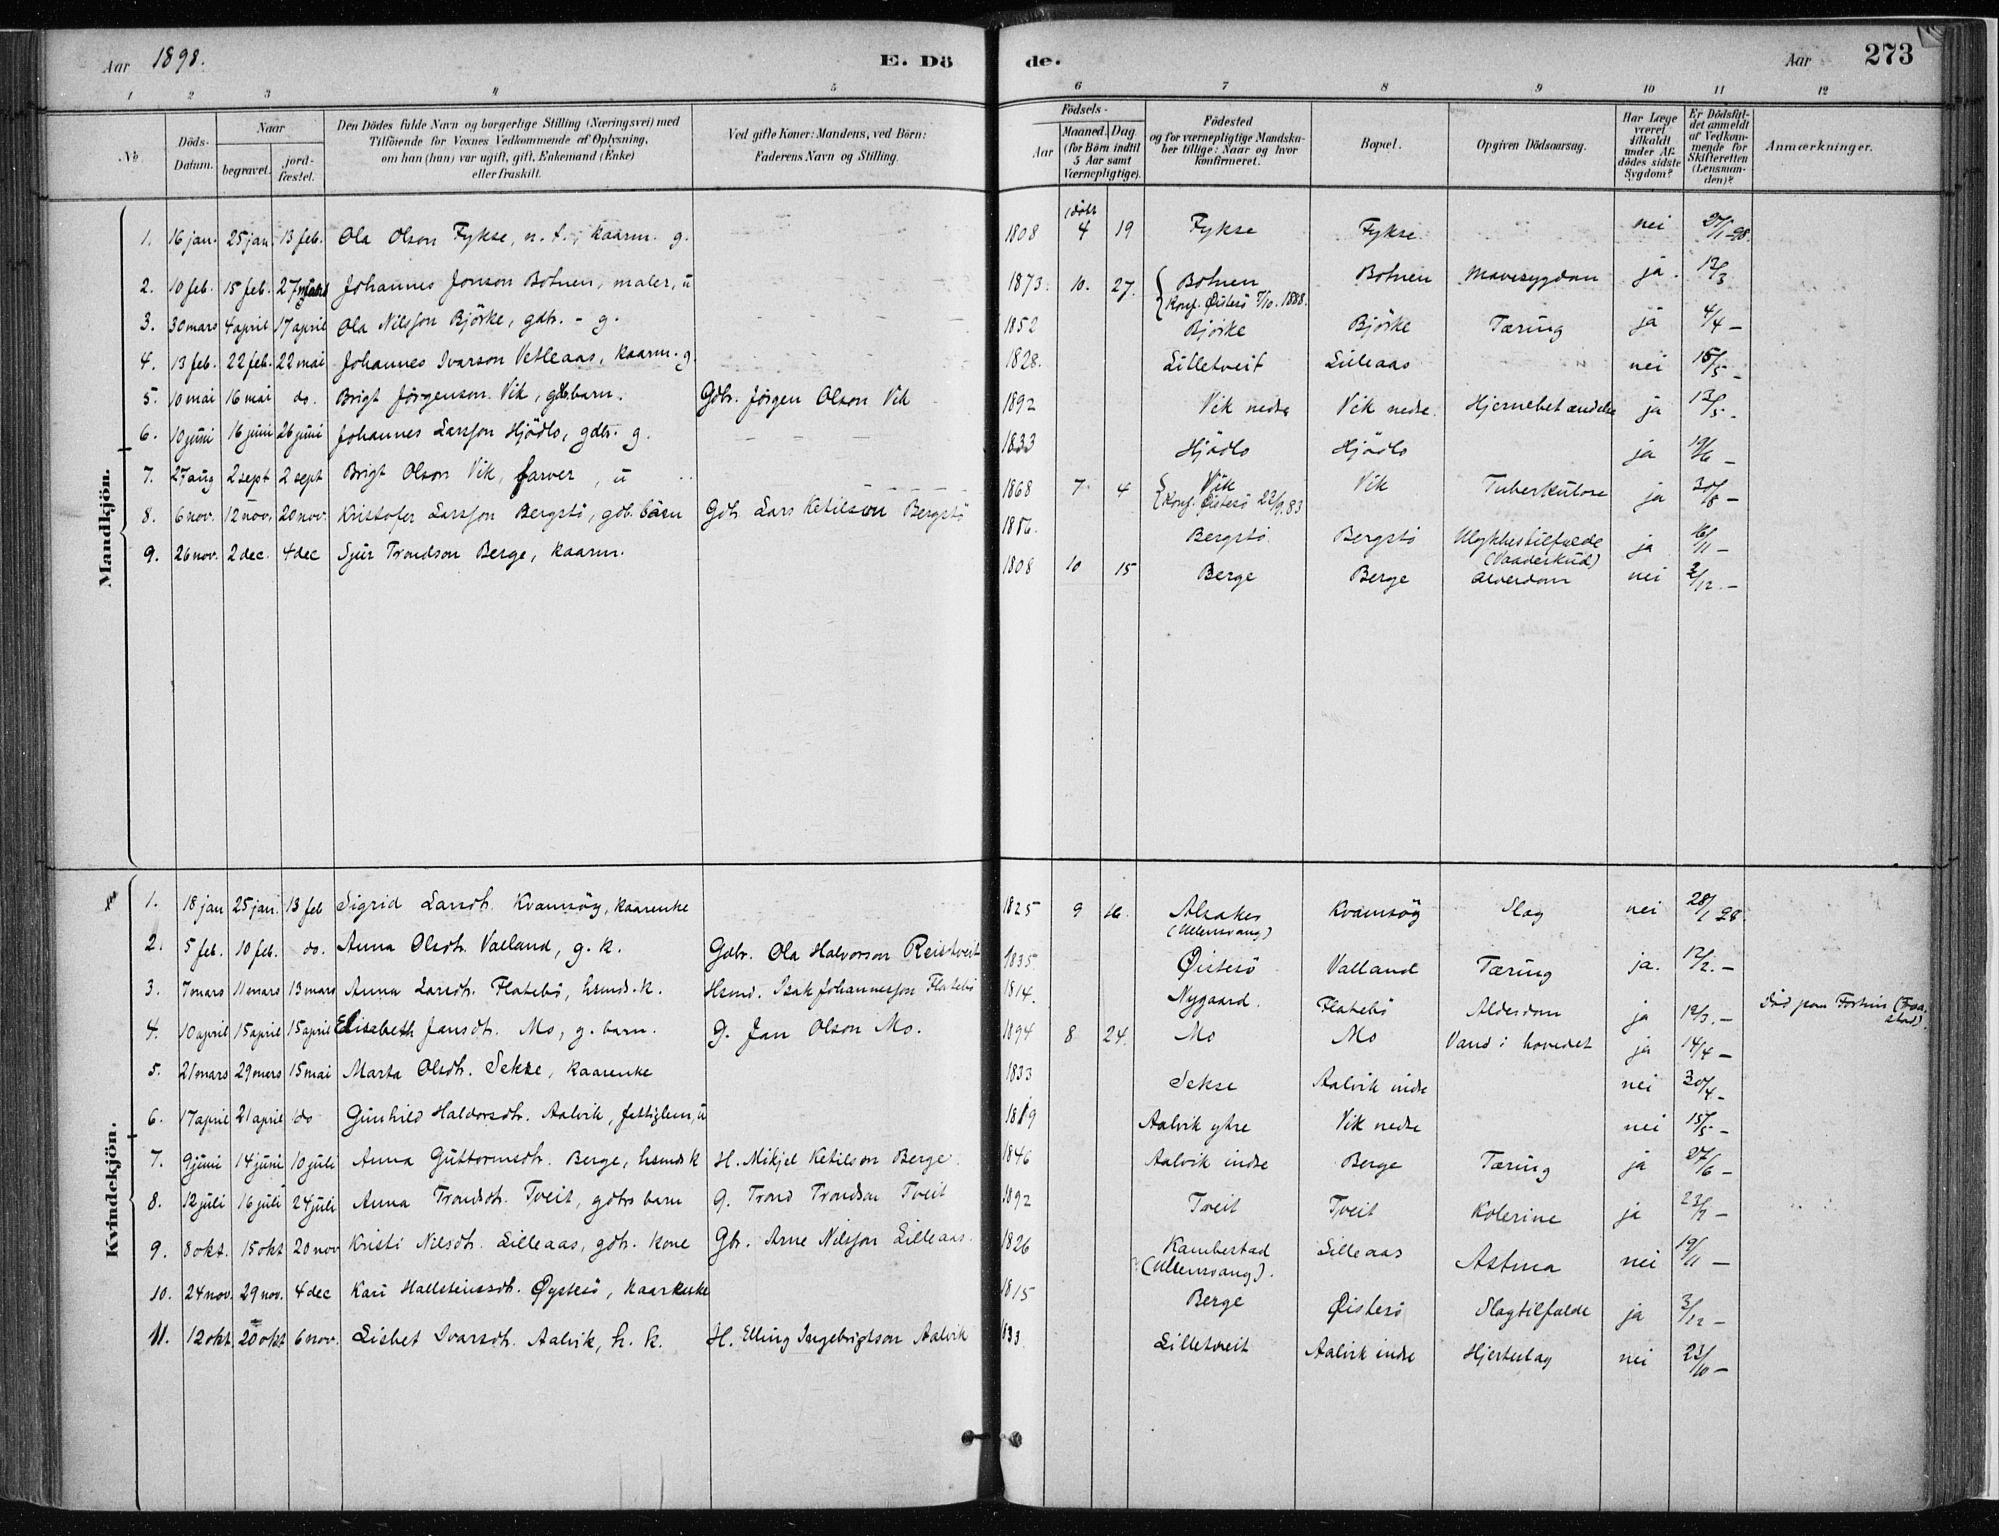 Aar 1898. E. Dö de. Aar 273
1 2 3 4 5 6 7 8 9 10 11 12
No. Döds-Datum. Naar begravet. jord-fæstet. Den Dödes fulde Navn og borgerlige Stilling (Næringsvei) med Tilföiende for Voxnes Vedkommende af Oplysning, om han (hun) var ugift, gift, Enkemand (Enke) eller fraskilt. Ved gifte Koner: Mandens, ved Börn: Faderens Navn og Stilling. Födsels- Aar Maaned. Dag (for Börn indtil 5 Aar samt Værnepligtige). Födested og for værnepligtige Mandskaber tillige: Naar og hvor konfirmeret. Bopæl. Opgiven Dödsaarsag. Har Læge været tilkaldt under Afdödes sidste Sygdom? Er Dödsfaldet anmeldt af Vedkommende for Skifteretten (Lensmanden)? Anmærkninger.
Mandkjön.
1. 16 jan. 25 jan. 13 feb. Ola Olson Fykse, n. f., kaarm. g. 1808 döbt 4 19 Fykse Fykse. nei 27/1 98.
2. 10 feb. 15 feb. 27 mars Johannes Jonson Botnen, maler, u 1873. 10. 27. Botnen Konf. Øistesö 7/10. 1888. Botnen Mavesygdom ja. 12/3
3. 30 mars 4 april 17 april Ola Nilsson Björke, gdbr. - g. 1852 Björke Björke Tæring ja 4/4 -
4. 13 feb. 22 feb. 22 mai Johannes Ivarson Vetleaas, kaarm. g 1828. Lilletveit Lilleaas nei 15/5 -
5. 10 mai 16 mai do. Brigt Jörgenson Vik, gdb. barn. Gdbr. Jörgen Olson Vik 1892 Vik nedre Vik nedre. Hjernebetændelse ja 12/5 -
6. 10 juni 16 juni 26 juni Johannes Larsson Hjödlo, gdbr. g. 1833 Hjödlo Hjödlo ja 19/6 -
7. 27 aug 2 sept 2 sept Brigt Olson Vik, farver, u 1868 7. 4 Vik Konf. Øistesö 22/9. 83 Vik Tuberkulose ja 30/8 -
8. 6 nov. 12 nov. 20 nov. Kristofer Larsson Bergstö, gdb. barn Gdb. Lars Ketilson Bergstö 1886. Bergstö Bergstö Ulykkestilfælde (Vaadeskud) ja 16/11 -
9. 26 nov. 2 dec. 4 dec Sjur Trondson Berge, kaarm. 1808 10 15 Berge Berge Alderdom nei 2/12. -
Kvindekjön.
1. 18 jan 25 jan. 13 feb Sigrid Larsdtr. Kvamsöy, kaarenke 1825 9 16. Alsaker (Ullensvang) Kvamsöy Slag nei 28/1 98.
2. 5 feb. 10 feb. do. Anna Olsdtr. Valland, g. k. Gdbr. Ola Halvorson Reistveit 1835 Øistesö Valland Tæring ja. 12/2. -
3. 7 mars 11 mars 13 mars Anna Larsdtr. Flatebö, husmds. k. Husmd. Isak Johannesson Flatebö 1814. Nygaard. Flatebö Alderdom ja 12/3. - Död paa
4. 10 april 15 april 15 april Elisabeth Jansdtr. Mo, g. barn. G. Jan Olson Mo. 1894 8 24. Mo Mo Vand i hovedet ja 14/4 -
5. 21 mars 29 mars 15 mai Marta Olsdtr. Sekse, kaarenke 1833 Sekse Aalvik indre nei 30/4 -
6. 17 april 21 april do Gunhild Haldorsdtr. Aalvik, fattiglem, u 1819 Aalvik ytre Vik nedre nei 15/5 -
7. 9 juni 14 juni 10 juli Anna Guttormsdtr. Berge, husmds k H. Mikjel Ketilson Berge 1846 Aalvik indre Berge Tæring ja 27/6 -
8. 12 juli 16 juli 24 juli Anna Trondsdtr. Tveit, gdbrs barn G. Trond Trondson Tveit 1892 Tveit Tveit Kolerine ja 23/7 -
9. 8 okt. 15 okt 20 nov Kristi Nilsdtr. Lilleaas, gdbr. kone Gbr. Arne Nilsson Lilleaas. 1826 Kambestad (Ullensvang). Lilleaas Astma nei 19/11 -
10. 24 nov. 29 nov. 4 dec Kari Hallsteinsdtr. Øystesö, kaarenke 1815 Berge Øistesö Slagtilfælde ja 3/12 -
11. 12 okt 20 okt 6 nov. Lisbet Ivarsdtr. Aalvik, h. k. H. Elling Ingebrigtson Aalvik 1833 Lilletveit Aalvik indre Hjerteslag nei 23/10 -